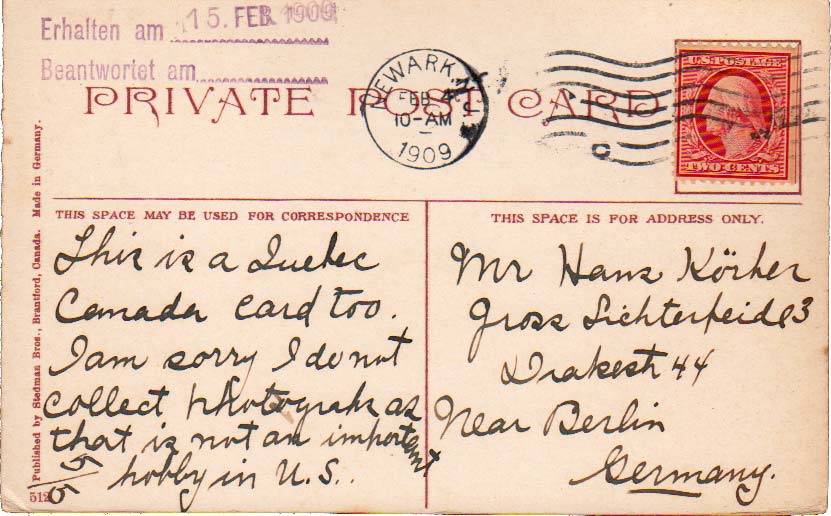 Erhalten am 15. FEB. 1909
Beantwortet am
PRIVATE POST CARD
NEWARK, N.J.
FEB 4
10-AM
1909
U.S. POSTAGE
TWO CENTS
THIS SPACE MAY BE USED FOR CORRESPONDENCE
This is a Quebec
Canada card too.
I am sorry I do not
collect photografs as
that is not an important
hobby in U.S..
5/5
THIS SPACE IS FOR ADDRESS ONLY.
Mr Hans Körher
Gross Lichterfeide 3
Drakestr 44
Near Berlin
Germany.
Published by Stedman Bros., Brantford, Canada. Made in Germany.
512